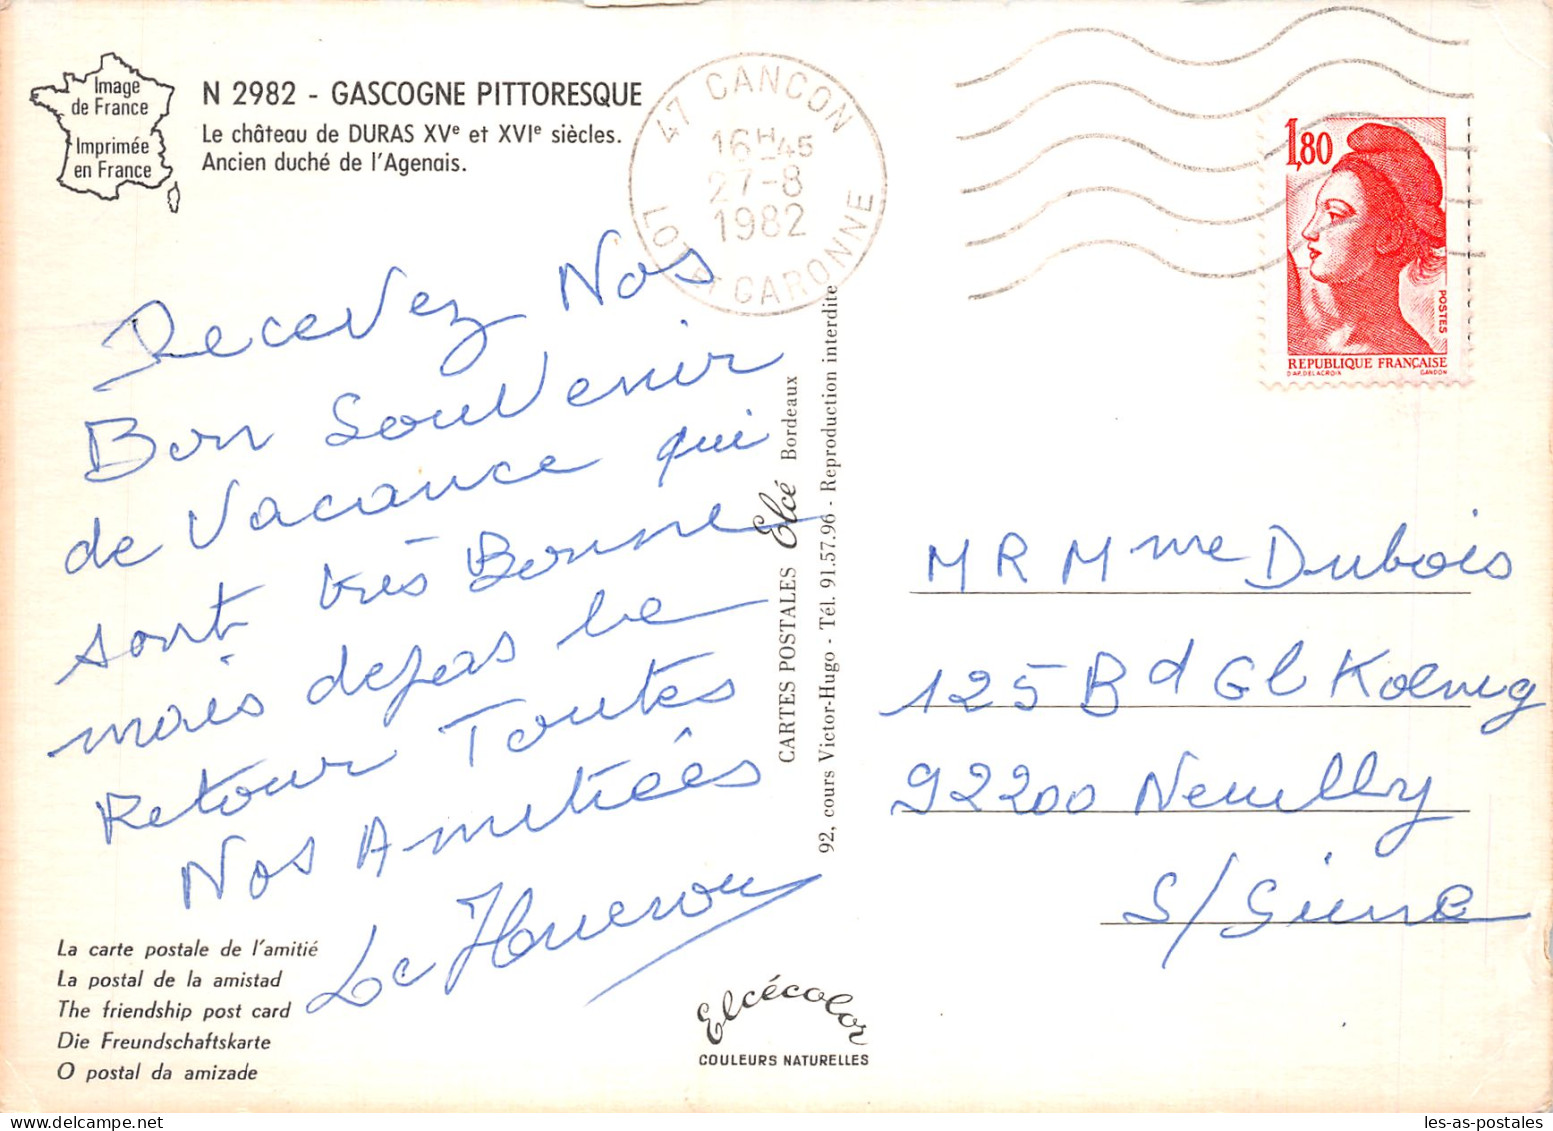 Image
de France
Imprimée
en France
N 2982 - GASCOGNE PITTORESQUE
Le château de DURAS XVe et XVIe siècles.
Ancien duché de l'Agenais.
47 CANCON
16H45
27-8
1982
LOT-ET-GARONNE
1,80
POSTES
REPUBLIQUE FRANÇAISE
D'AP. DELACROIX GANDON
Recevez Nos
Bon Souvenir
de Vacance qui
sont très Bonne
mais depas le
Retour Toutes
Nos Amitiées
CARTES POSTALES Elcé Bordeaux
92, cours Victor-Hugo - Tél. 91.57.96 - Reproduction interdite
MR Mme Dubois
125 Bd Gl Koenig
92200 Neuilly
S/Seine
La carte postale de l'amitié
La postal de la amistad
The friendship post card
Die Freundschaftskarte
O postal da amizade
Elcécolor
COULEURS NATURELLES
les-as-postales